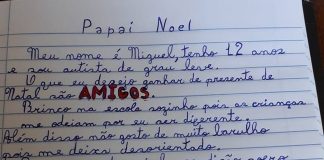 Papai Noel
Meu nome é Miguel, tenho 12 anos
e sou autista de grau leve.
O que eu desejo ganhar de presente de
Natal são AMIGOS.
Brinco na escola sozinho pois as crianças
me odeiam por eu ser diferente.
Além disso não gosto de muito barulho
pois me deixa desorientado.